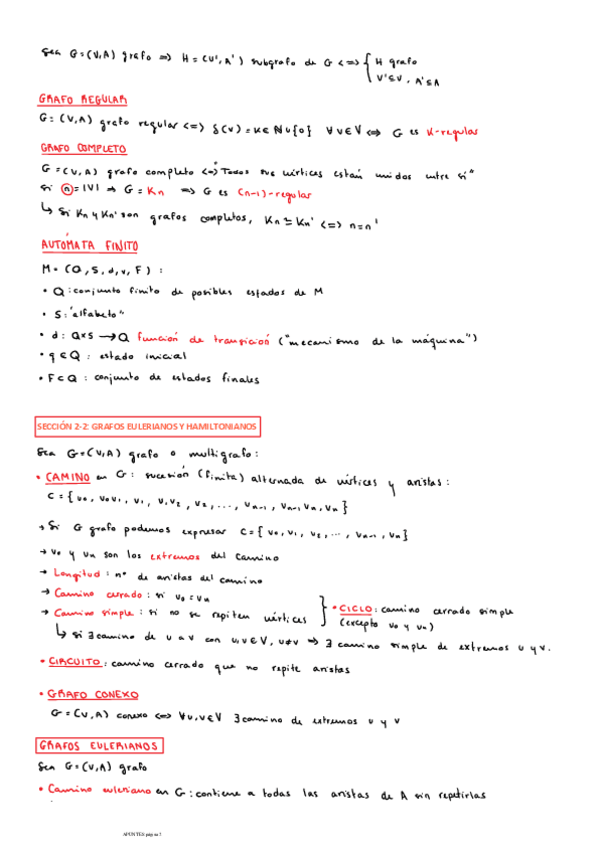 Sea G=(V,A) grafo => H=(V',A') subgrafo de G <=> { H grafo
V'⊆V, A'⊆A
GRAFO REGULAR
G=(V,A) grafo regular <=> δ(v)=k∈ℕ∪{0} ∀v∈V <=> G es K-regular
GRAFO COMPLETO
G=(V,A) grafo completo <=> "Todos sus vértices están unidos entre sí"
Si n=|V| => G=Kn => G es (n-1)-regular
↳ Si Kn y Kn' son grafos completos, Kn≃Kn' <=> n=n'
AUTÓMATA FINITO
M=(Q,S,d,v,F):
• Q: conjunto finito de posibles estados de M
• S: "alfabeto"
• d: Q×S → Q función de transición ("mecanismo de la máquina")
• q∈Q: estado inicial
• F⊂Q: conjunto de estados finales
SECCIÓN 2-2: GRAFOS EULERIANOS Y HAMILTONIANOS
Sea G=(V,A) grafo o multigrafo:
• CAMINO en G: sucesión (finita) alternada de vértices y aristas:
C={v0, v0v1, v1, v1v2, v2, ..., vn-1, vn-1vn, vn}
→ Si G grafo podemos expresar C={v0, v1, v2, ..., vn-1, vn}
→ v0 y vn son los extremos del camino
→ Longitud: nº de aristas del camino
→ Camino cerrado: si v0=vn
→ Camino simple: si no se repiten vértices
} • CICLO: camino cerrado simple
(excepto v0 y vn)
↳ si ∃ camino de u a v con u,v∈V, u≠v => ∃ camino simple de extremos u y v.
• CIRCUITO: camino cerrado que no repite aristas
• GRAFO CONEXO
G=(V,A) conexo <=> ∀u,v∈V ∃ camino de extremos u y v
GRAFOS EULERIANOS
Sea G=(V,A) grafo
• Camino euleriano en G: contiene a todas las aristas de A sin repetirlas